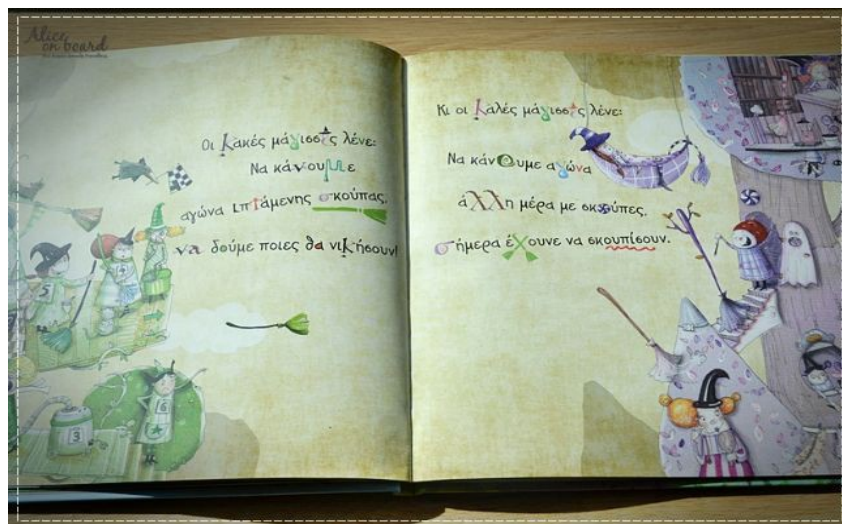 Alice
on board
Οι κακές μάγισσες λένε:
Να κάνουμε
αγώνα ιπτάμενης σκούπας,
να δούμε ποιες θα νικήσουν!
Κι οι καλές μάγισσες λένε:
Να κάνουμε αγώνα
άλλη μέρα με σκούπες.
σήμερα έχουνε να σκουπίσουν.
5
6
3